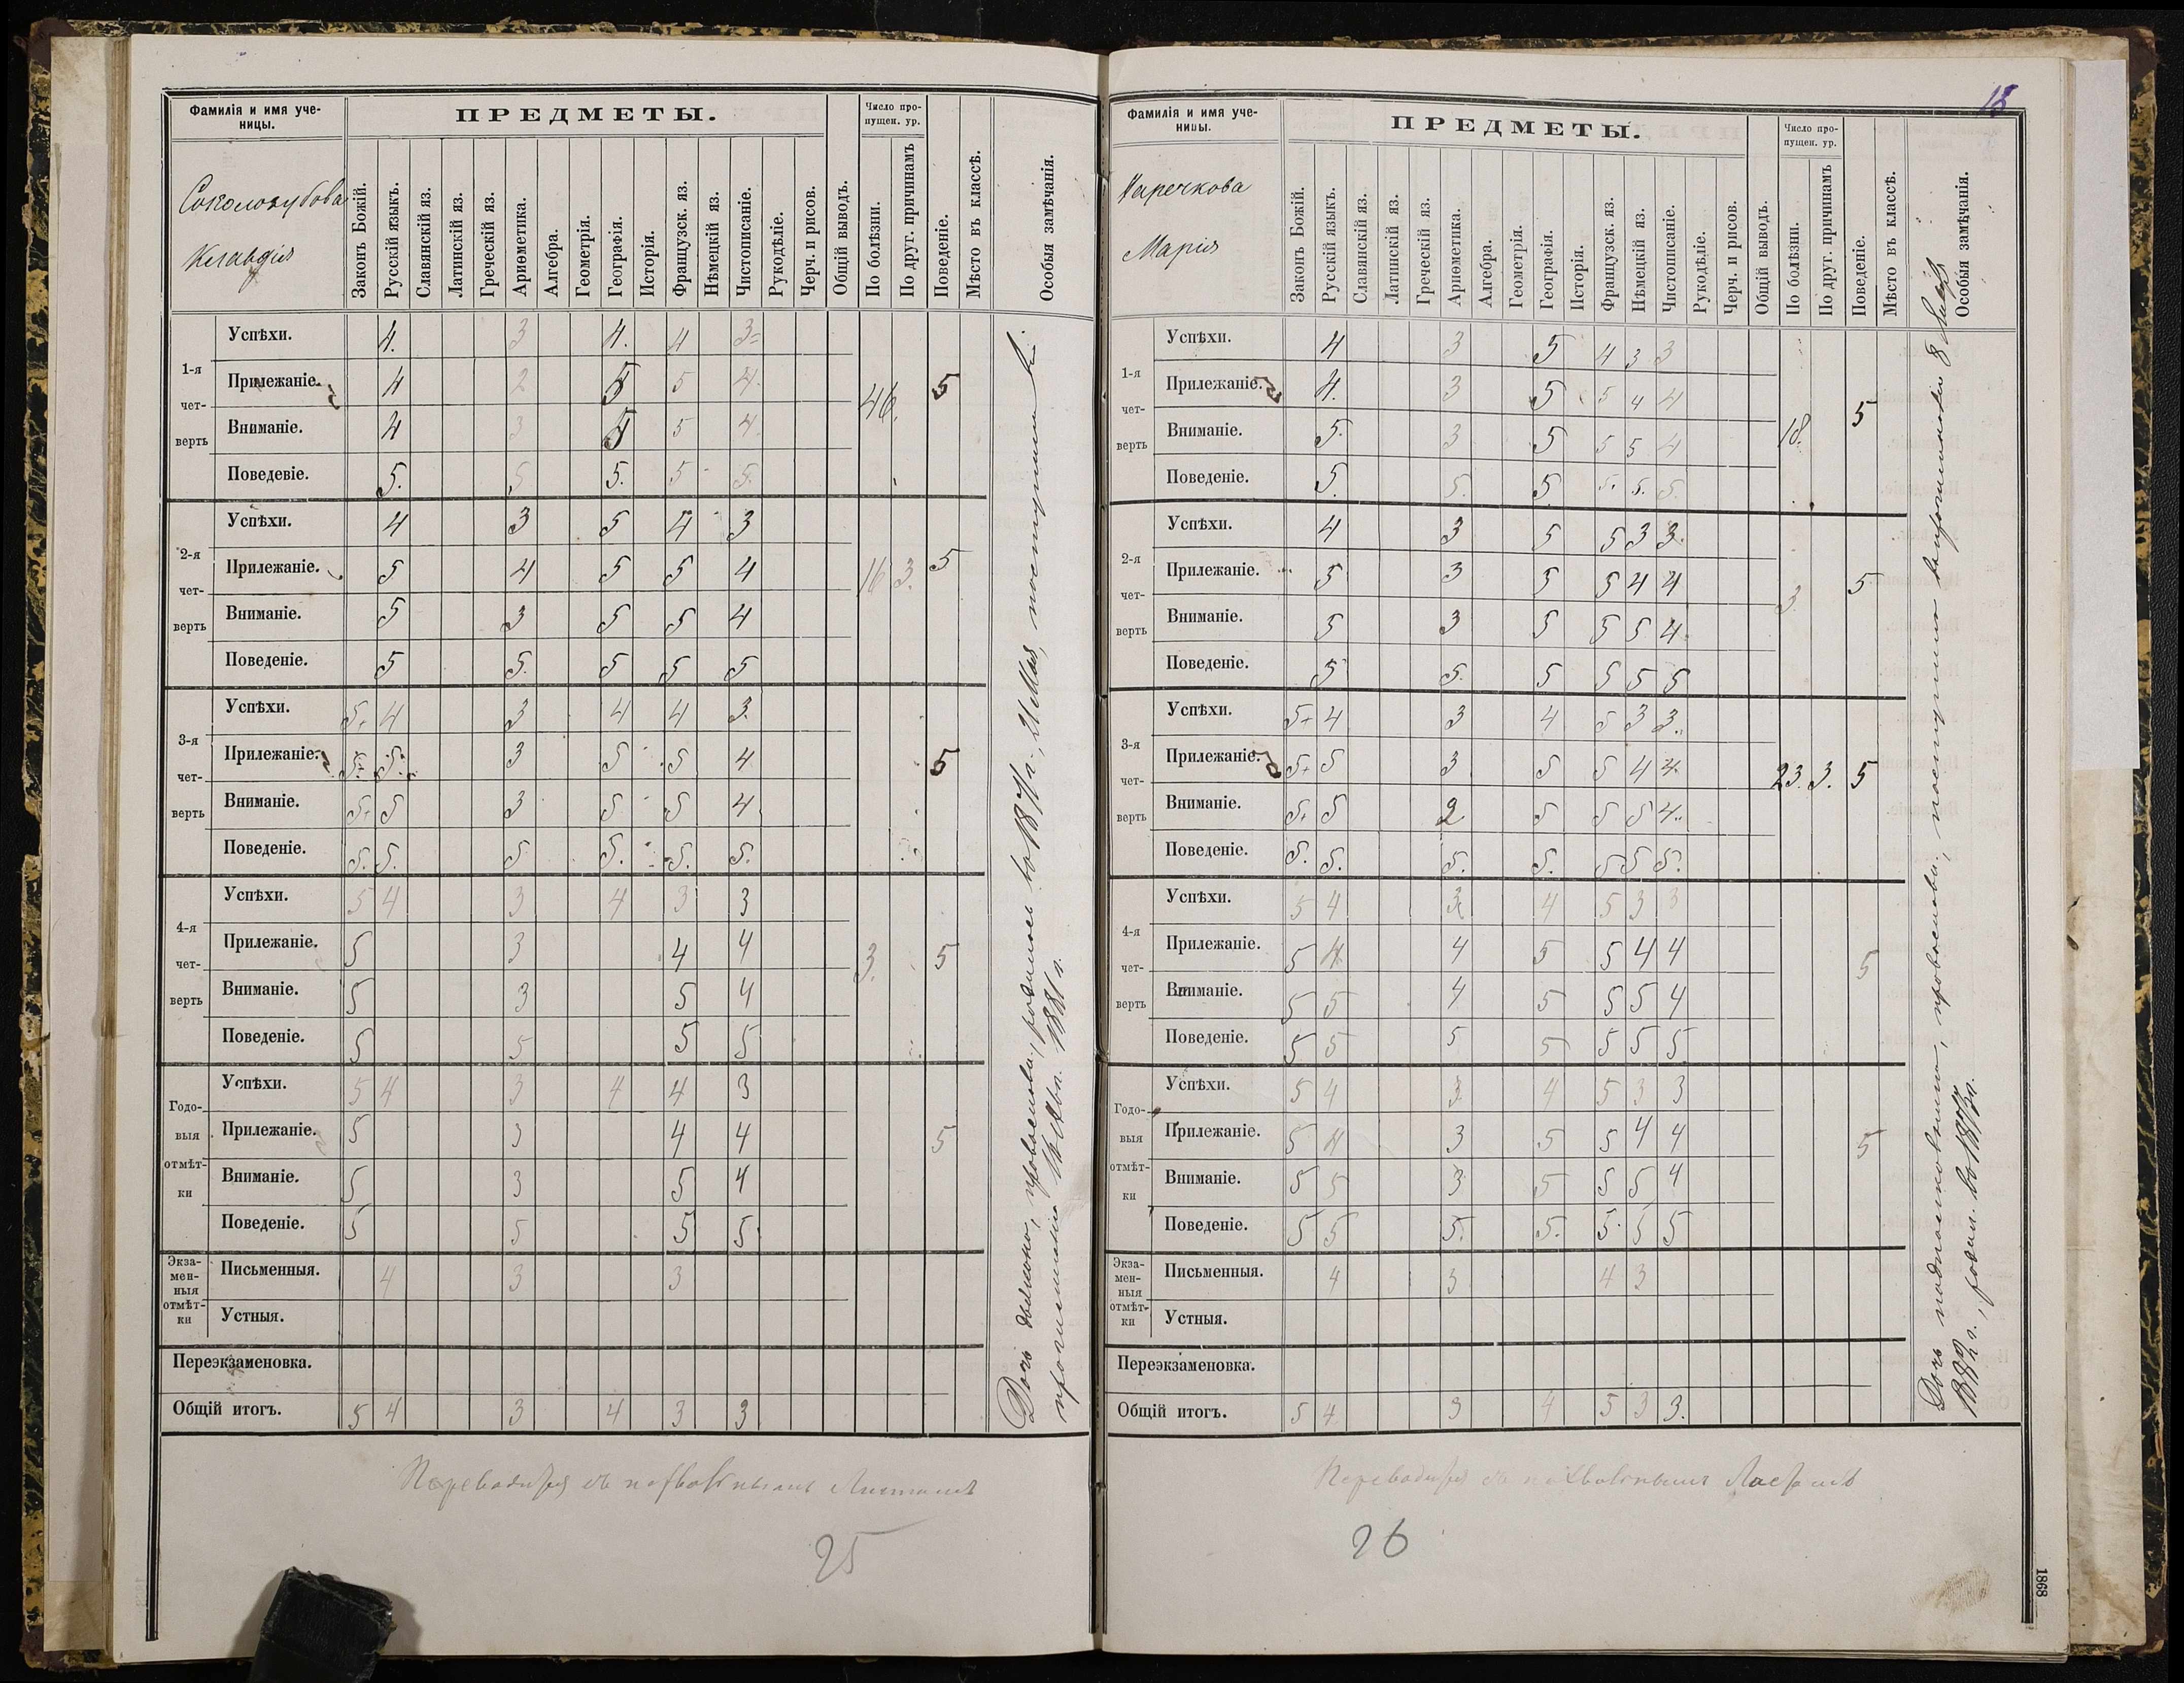 Фамилія и имя уче-
ницы.
ПРЕДМЕТЫ.
Число про-
пущен. ур.
Клавдія
Законъ Божій.
Русскій языкъ.
Славянскій яз.
Латинскій яз.
Греческій яз.
Ариѳметика.
Алгебра.
Геометрія.
Географія.
Исторія.
Французск. яз.
Нѣмецкій яз.
Чистописаніе.
Рукодѣліе.
Черч. и рисов.
Общій выводъ.
По болѣзни.
По друг. причинамъ
Поведеніе.
Мѣсто въ классѣ.
Особыя замѣчанія.
1-я чет-верть
Успѣхи. 4. 3 4. 4 3=
Прилежаніе. 4 2 5 5 4. 46. 5
Вниманіе. 4 3 5 5 4.
Поведеніе. 5. 5 5. 5 5.
2-я чет-верть
Успѣхи. 4 3 5 4 3
Прилежаніе. 5 4 5 5 4 16 3. 5
Вниманіе. 5 3 5 5 4
Поведеніе. 5 5. 5 5 5
3-я чет-верть
Успѣхи. 5+ 4 3 4 4 3.
Прилежаніе. 5+ 5. 3 5 5 4 5
Вниманіе. 5+ 5 3 5 5 4
Поведеніе. 5. 5. 5 5. 5. 5.
4-я чет-верть
Успѣхи. 5 4 3 4 3 3
Прилежаніе. 5 3 4 4 3. 5
Вниманіе. 5 3 5 4
Поведеніе. 5 5 5 5
Годо-выя отмѣт-ки
Успѣхи. 5 4 3 4 4 3
Прилежаніе. 5 3 4 4 5
Вниманіе. 5 3 5 4
Поведеніе. 5 5 5 5.
Экза-мен-ныя отмѣт-ки
Письменныя. 4 3 3
Устныя.
Переэкзаменовка.
Общій итогъ. 5 4 3 4 3 3
Дочь дьякона, православн., родилась въ 1871 г., 21 Мая, поступила по
прошенію 1881 г.
Переводится съ похвальнымъ Листомъ
25
18
Фамилія и имя уче-
ницы.
ПРЕДМЕТЫ.
Число про-
пущен. ур.
Марія
Законъ Божій.
Русскій языкъ.
Славянскій яз.
Латинскій яз.
Греческій яз.
Ариѳметика.
Алгебра.
Геометрія.
Географія.
Исторія.
Французск. яз.
Нѣмецкій яз.
Чистописаніе.
Рукодѣліе.
Черч. и рисов.
Общій выводъ.
По болѣзни.
По друг. причинамъ
Поведеніе.
Мѣсто въ классѣ.
Особыя замѣчанія.
1-я чет-верть
Успѣхи. 4 3 5 4 3 3
Прилежаніе. 4. 3 5 5 4 4 18. 5
Вниманіе. 5. 3 5 5 5 4
Поведеніе. 5. 5. 5 5. 5. 5.
2-я чет-верть
Успѣхи. 4 3 5 5 3 3.
Прилежаніе. 5 3 5 5 4 4 3. 5
Вниманіе. 5 3 5 5 5 4.
Поведеніе. 5 5. 5 5 5 5
3-я чет-верть
Успѣхи. 5+ 4 3 4 5 3 3.
Прилежаніе. 5+ 5 3 5 5 4 4. 23. 3. 5
Вниманіе. 5+ 5 2 5 5 5 4.
Поведеніе. 5. 5. 5. 5. 5 5 5.
4-я чет-верть
Успѣхи. 5 4 3 4 5 3 3
Прилежаніе. 5 4 4 5 5 4 4 5
Вниманіе. 5 5 4 5 5 5 4
Поведеніе. 5 5 5 5 5 5 5
Годо-выя отмѣт-ки
Успѣхи. 5 4 3. 4 5 3 3
Прилежаніе. 5 4 3 5 5 4 4 5
Вниманіе. 5 5 3 5 5 5 4
Поведеніе. 5 5 5. 5. 5. 5 5
Экза-мен-ныя отмѣт-ки
Письменныя. 4 3 4 3
Устныя.
Переэкзаменовка.
Общій итогъ. 5 4 3 4 5 3 3.
Дочь подполковника, православн., поступила по прошенію 8
1882 г., родил. въ
Переводится съ похвальнымъ Листомъ
26
1868